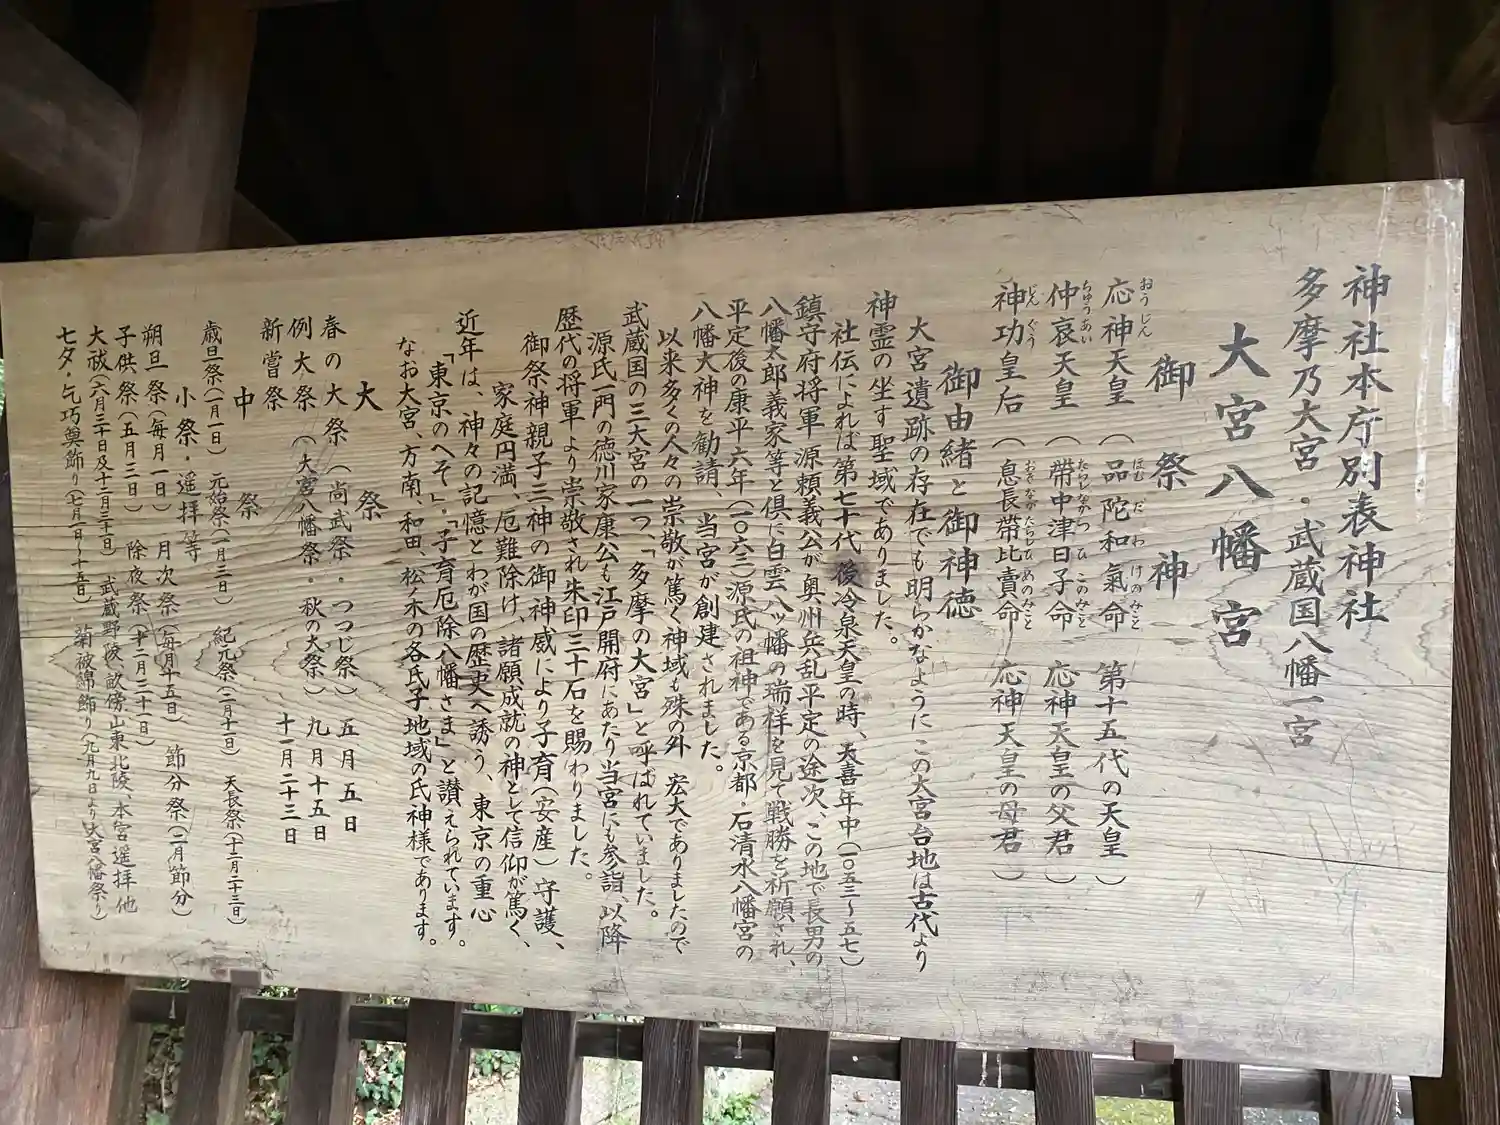 神社本庁別表神社
多摩乃大宮・武蔵国八幡一宮
大宮八幡宮
御祭神
応神天皇（品陀和氣命 第十五代の天皇）
おうじん ほむだわけのみこと
仲哀天皇（帶中津日子命 応神天皇の父君）
ちゅうあい たらしなかつひこのみこと
神功皇后（息長帶比賣命 応神天皇の母君）
じんぐう おきながたらしひめのみこと
御由緒と御神徳
大宮遺跡の存在でも明らかなようにこの大宮台地は古代より
神霊の坐す聖域でありました。
社伝によれば第七十代後冷泉天皇の時、天喜年中（一〇五三～五七）
鎮守府将軍源頼義公が奥州兵乱平定の途次、この地で長男の
八幡太郎義家等と倶に白雲八ッ幡の瑞祥を見て戦勝を祈願され、
平定後の康平六年（一〇六三）源氏の祖神である京都・石清水八幡宮の
八幡大神を勧請、当宮が創建されました。
以来多くの人々の崇敬が篤く神域も殊の外宏大でありましたので
武蔵国の三大宮の一つ、「多摩の大宮」と呼ばれていました。
源氏一門の徳川家康公も江戸開府にあたり当宮にも参詣、以降
歴代の将軍より崇敬され朱印三十石を賜わりました。
御祭神親子三神の御神威により子育（安産）守護、
家庭円満、厄難除け、諸願成就の神として信仰が篤く、
近年は、神々の記憶とわが国の歴史へ誘う、東京の重心
「東京のへそ」・「子育厄除八幡さま」と讃えられています。
なお大宮、方南、和田、松ノ木の各氏子地域の氏神様であります。
大祭
春の大祭（尚武祭・つつじ祭） 五月五日
例大祭（大宮八幡祭・秋の大祭） 九月十五日
新嘗祭 十一月二十三日
中祭
歳旦祭（一月一日） 元始祭（一月三日） 紀元祭（二月十一日） 天長祭（十二月二十三日）
小祭・遥拝等
朔旦祭（毎月一日） 月次祭（毎月十五日） 節分祭（二月節分）
子供祭（五月三日） 除夜祭（十二月三十一日）
大祓（六月三十日及十二月三十日） 武蔵野陵、畝傍山東北陵、本宮遥拝他
七夕・乞巧奠飾り（七月一日～十五日） 菊被綿飾り（九月九日より大宮八幡祭り）